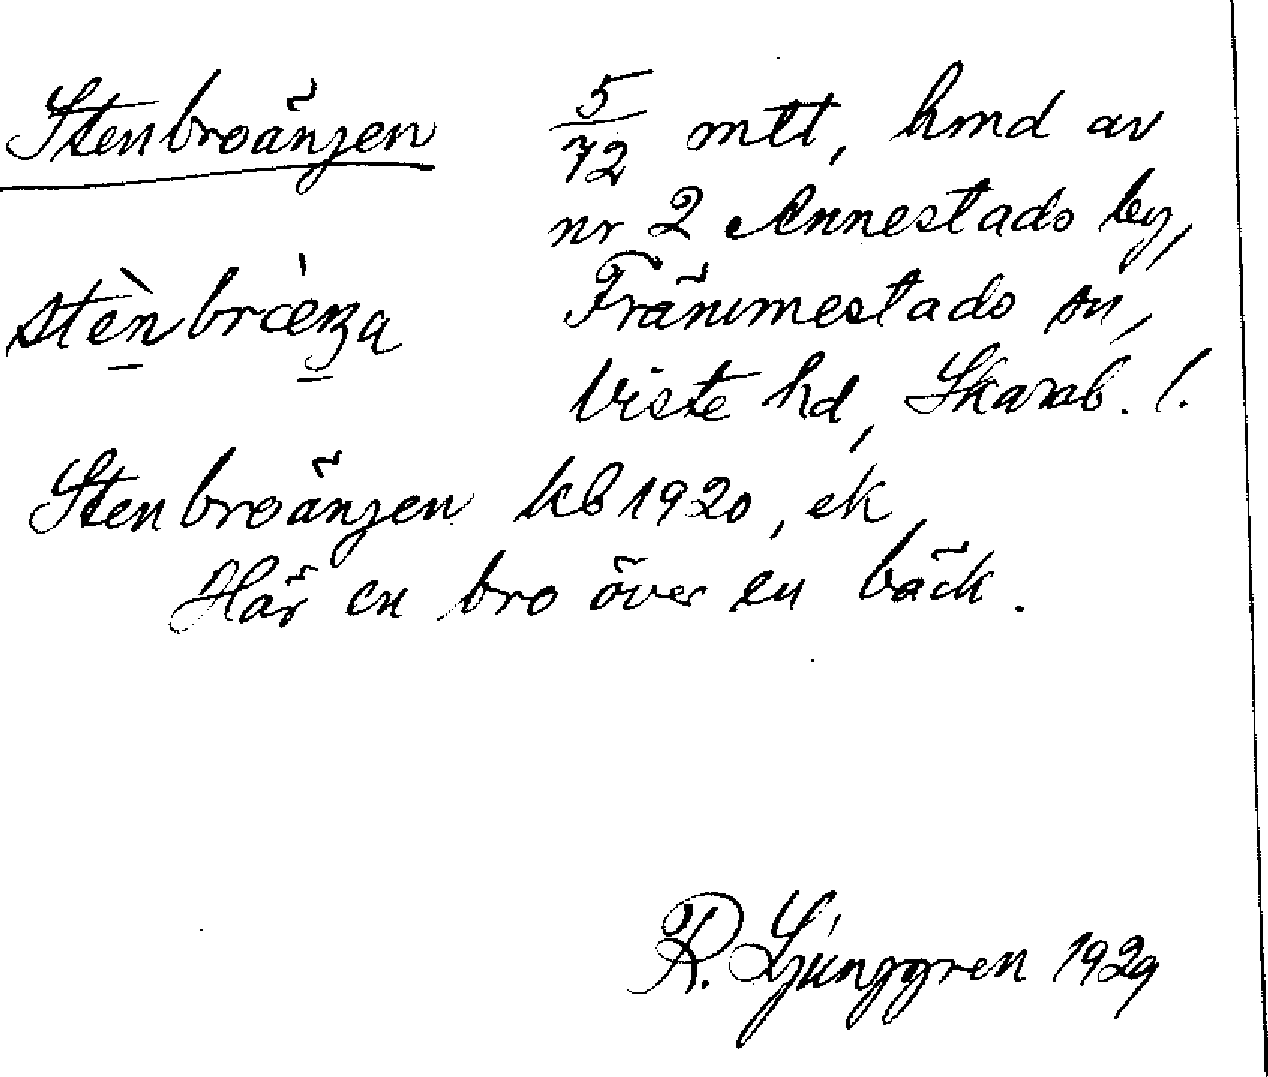 Stenbroängen 5/72 mtt, hmd av
nr 2 Annestads by,
stènbræ̀ŋa Främmestads sn,
Viste hd, Skarab. l.
Stenbroängen kb 1920, ek
Här en bro över en bäck.
R. Ljunggren 1929